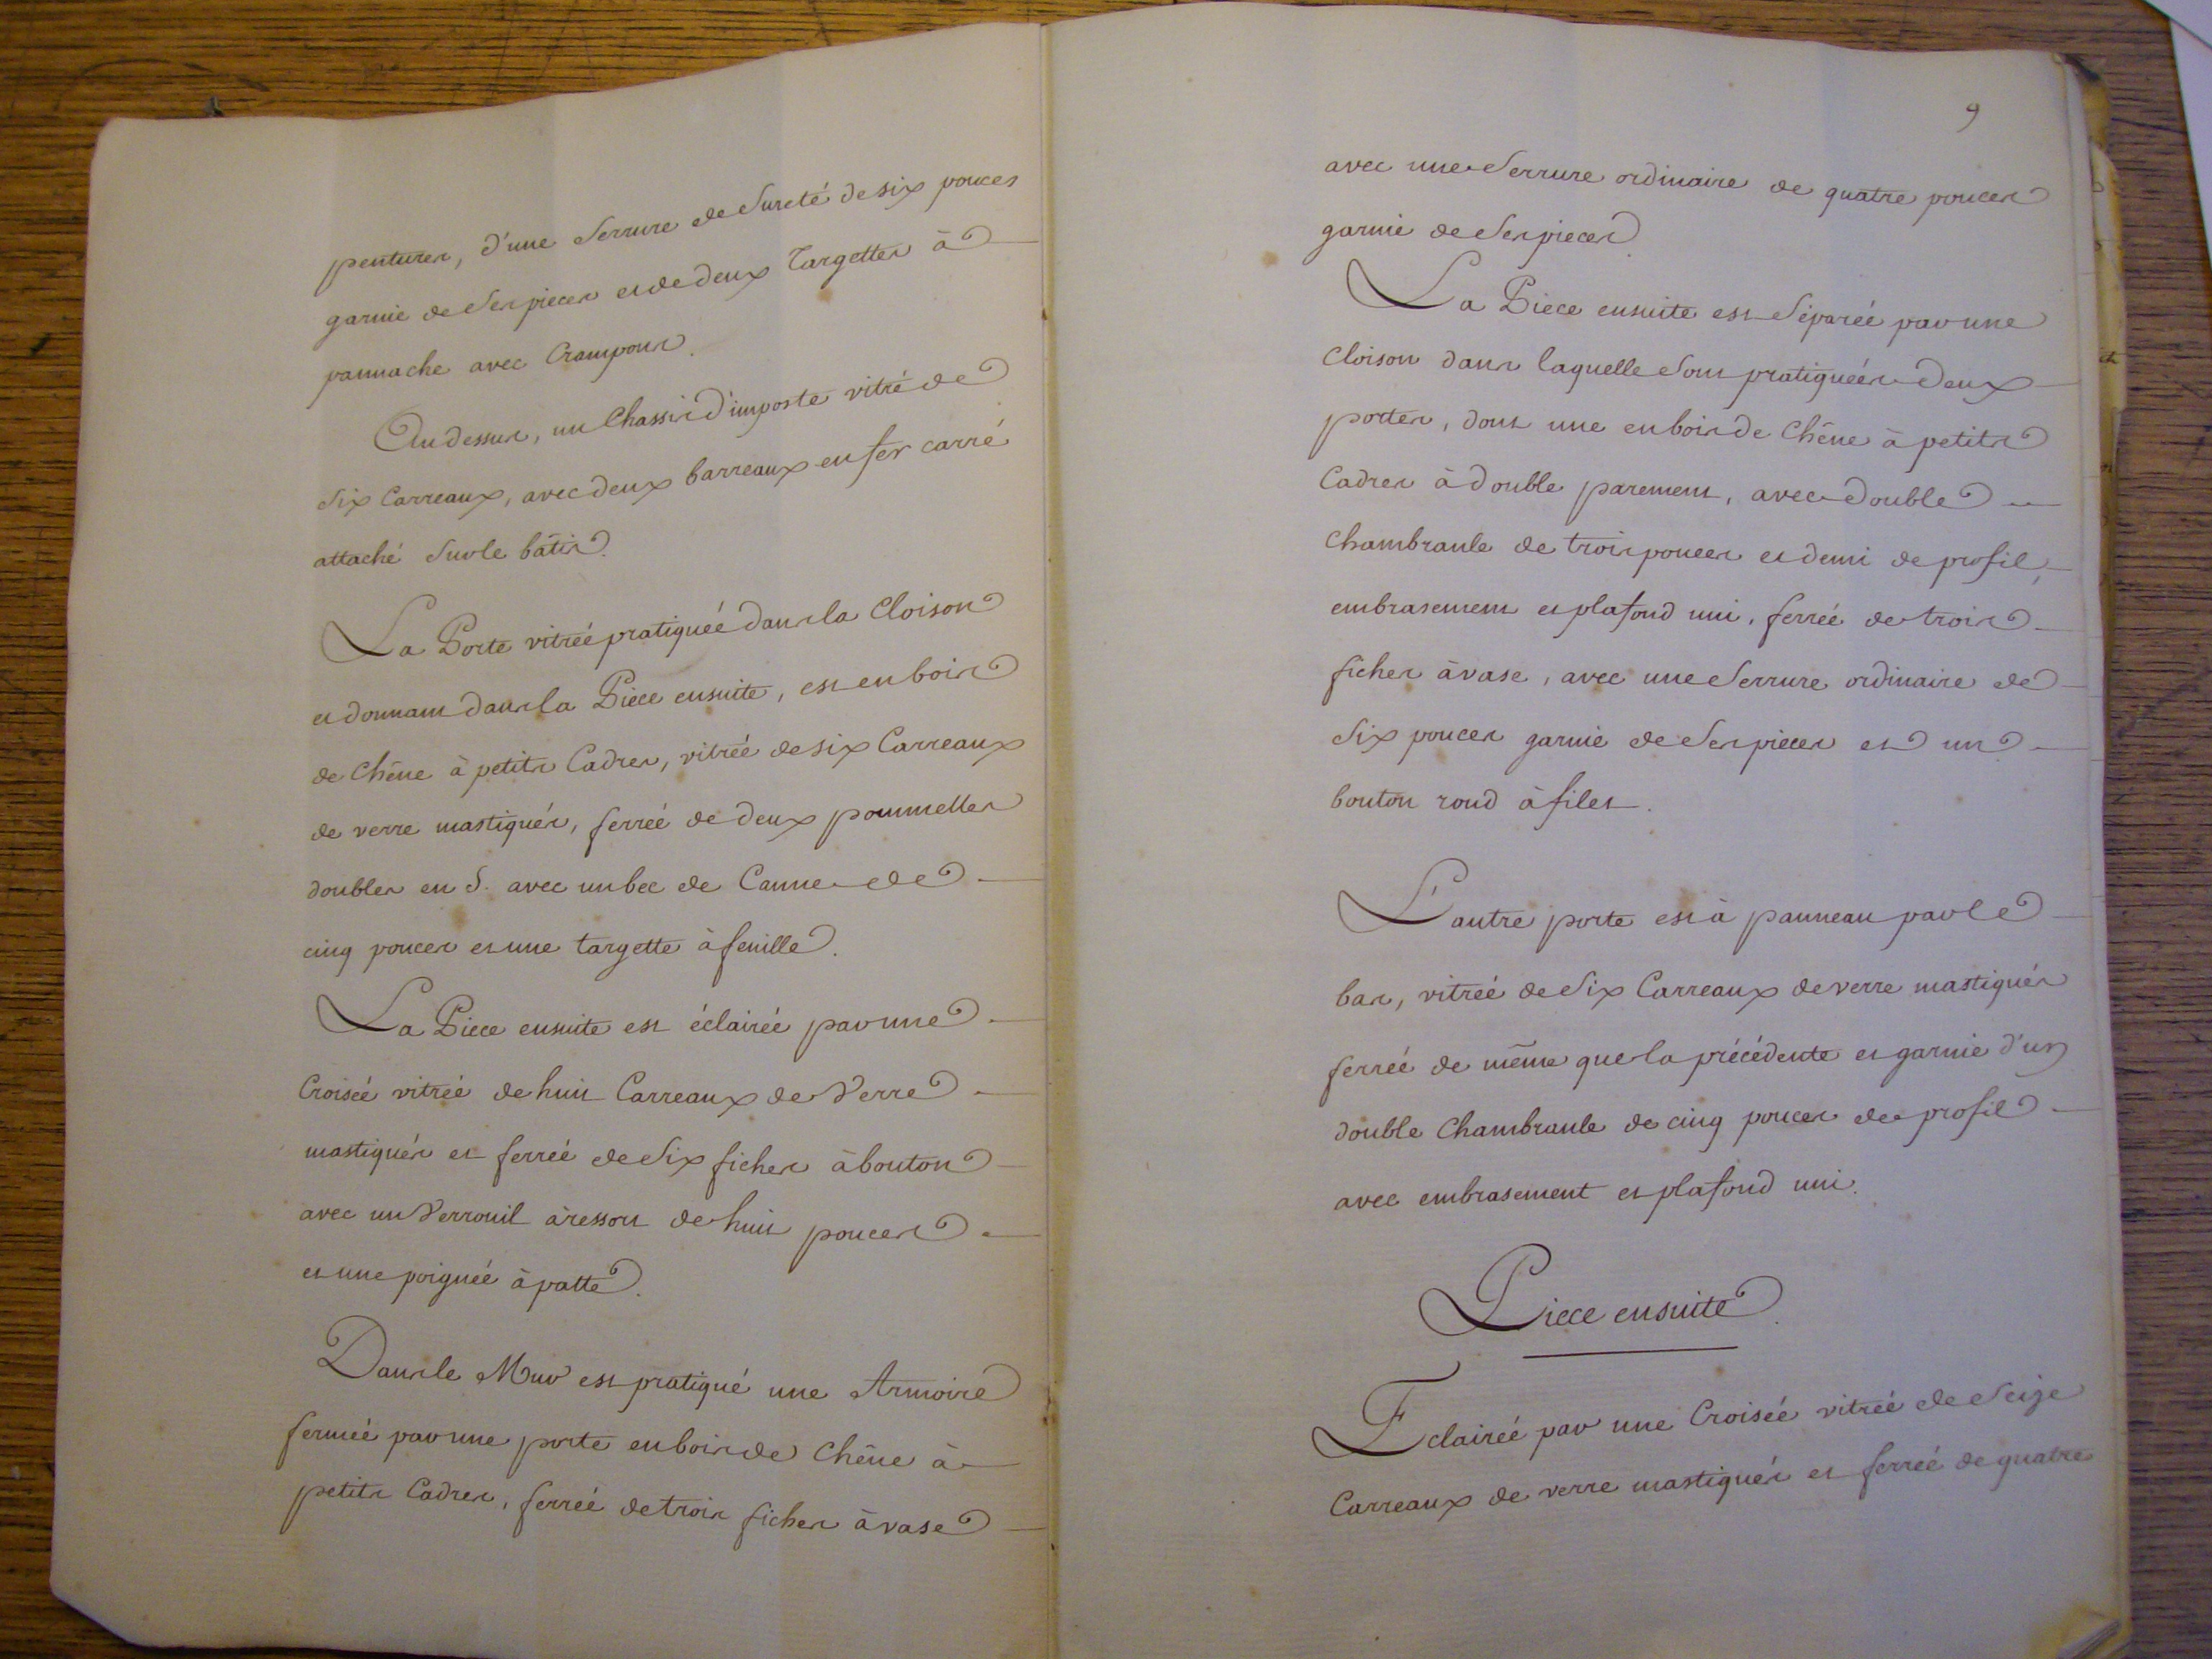 pentures, d'une Serrure de Sureté de six pouces
garnie de Ses pieces et de deux Targettes à
pannache avec Crampons.
Au dessus, un Chassis d'imposte vitré de
Six Carreaux, avec deux barreaux en fer carré
attaché Sur le bâtis.
La Porte vitreé pratiqueé dans la Cloison
et donnant dans la Piece ensuite, est en bois
de Chêne à petits Cadres, vitreé de six Carreaux
de verre mastiqués, ferreé de deux pommelles
doubles en S. avec un bec de Canne de
cinq pouces et une targette à feuille.
La Piece ensuite est éclaireé par une
Croiseé vitreé de huit Carreaux de Verre
mastiqués et ferreé de Six fiches à bouton
avec un Verrouil à ressort de huit pouces
et une poigneé à patte.
Dans le Mur est pratiqué une Armoire
fermeé par une porte en bois de Chêne à
petits Cadres, ferreé de trois fiches à vase
9
avec une Serrure ordinaire de quatre pouces
garnie de Ses pieces.
La Piece ensuite est Sépareé par une
Cloison dans laquelle Sont pratiqueés deux
portes, dont une en bois de Chêne à petits
Cadres à double parement, avec double
Chambranle de trois pouces et demi de profil,
embrasement et plafond uni, ferreé de trois
fiches à vase, avec une Serrure ordinaire de
Six pouces garnie de Ses pieces et un
bouton rond à filet.
L'autre porte est à panneau par le
bas, vitreé de Six Carreaux de verre mastiqués
ferreé de même que la précédente et garnie d'un
double Chambranle de cinq pouces de profil
avec embrasement et plafond uni.
Piece ensuite.
Eclaireé par une Croiseé vitreé de Seize
Carreaux de verre mastiqués et ferreé de quatre